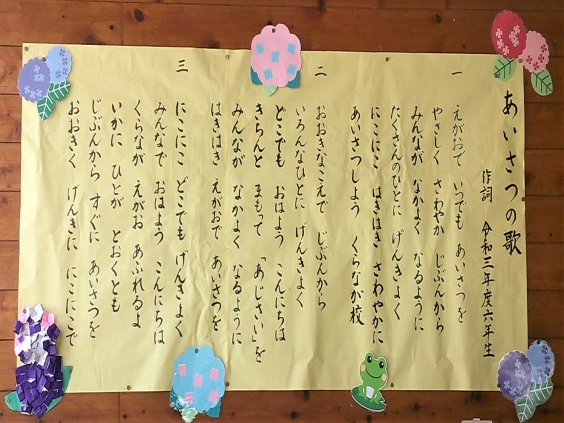 あいさつの歌
作詞 令和三年度六年生
一
えがおで いつでも あいさつを
やさしく さわやか じぶんから
みんなが なかよく なるように
たくさんのひとに げんきよく
にこにこ はきはき さわやかに
あいさつしよう くらなが校
二
おおきなこえで じぶんから
いろんなひとに げんきよく
どこでも おはよう こんにちは
きちんと まもって 「あじさい」を
みんなが なかよく なるように
はきはき えがおで あいさつを
三
にこにこ どこでも げんきよく
みんなで おはよう こんにちは
くらなが えがお あふれるよ
いかに ひとが とおくとも
じぶんから すぐに あいさつを
おおきく げんきに にこにこで